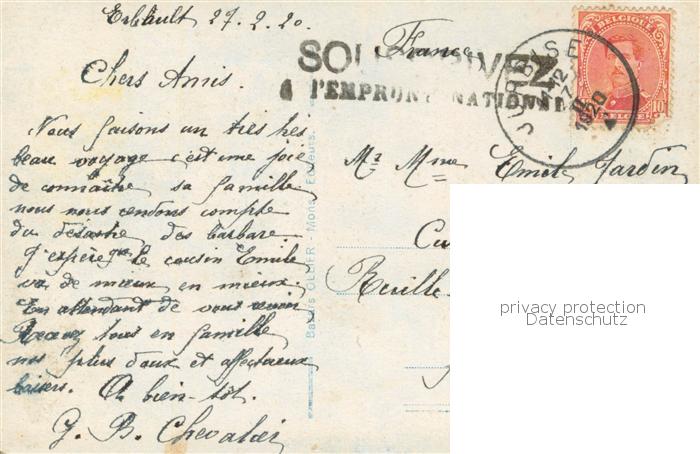 Erbault 27.2.20.
Chers Amis.
Nous faisons un très
beau voyage c'est une joie
de connaître sa famille
nous nous rendons compte
du désastre des barbare
J'espère que le cousin Emile
va de mieux en mieux.
En attendant de vous revoir
Recevez tous en famille
nos plus doux et affectueux
baisers. A bien-tôt.
J. B. Chevalier
France
SOUSCRIVEZ
à l'EMPRUNT NATIONAL
JURBISE
1920
BELGIQUE
10
BELGIË
Mr Mme Emile Jardin
Reuille
Mons. Editeurs.
privacy protection
Datenschutz